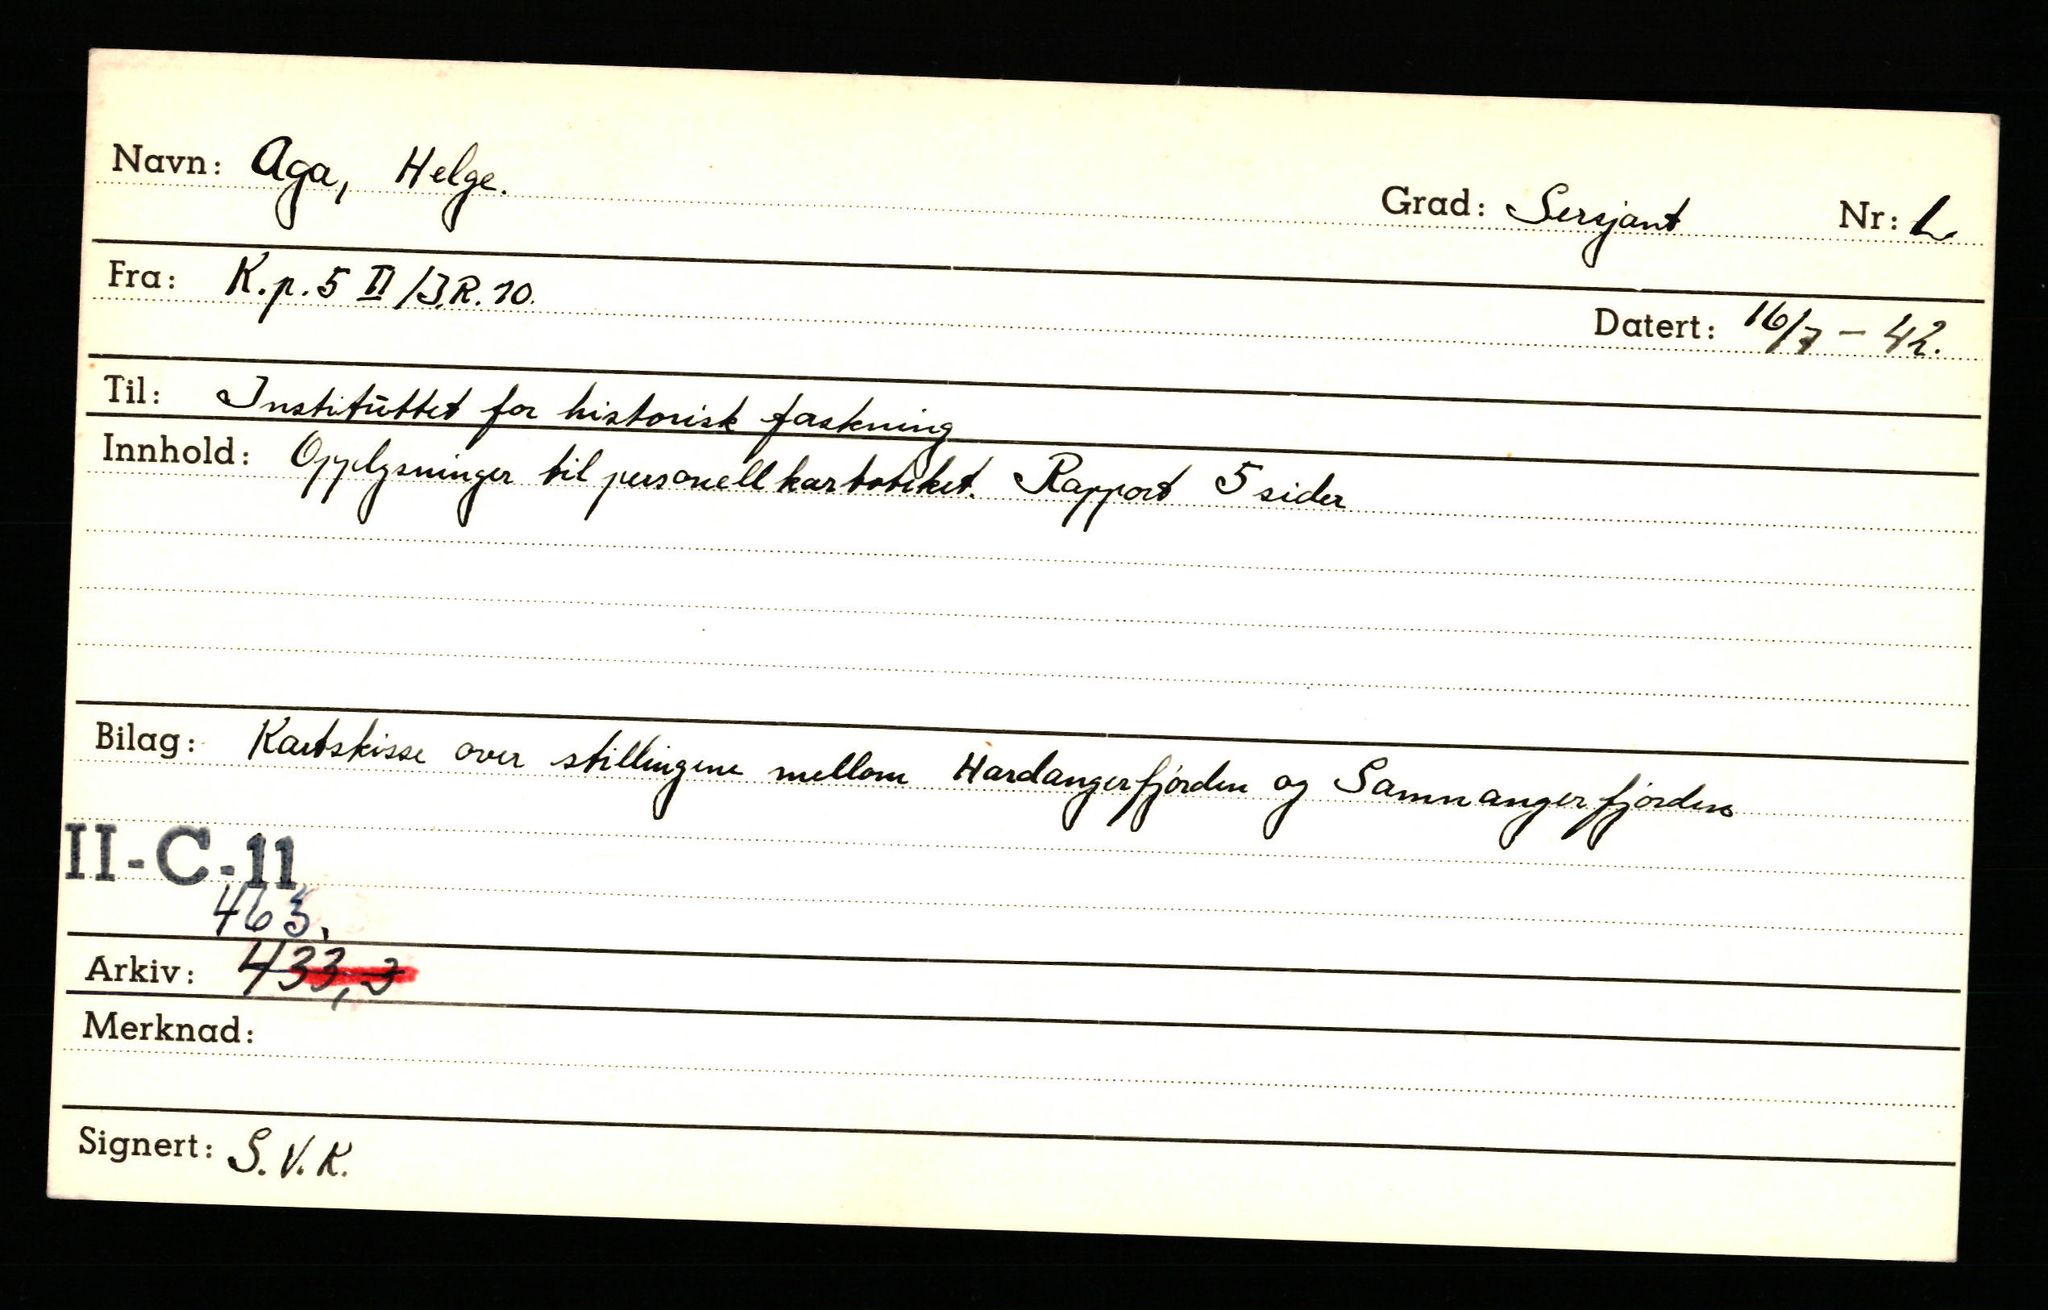 Navn: Aga, Helge. Grad: Sersjant Nr: L
Fra: K.p. 5 II/J.R. 10. Datert: 16/7 - 42.
Til: Instituttet for historisk forskning
Innhold: Opplysninger til personellkartoteket. Rapport 5 sider
Bilag: Kartskisse over stillingene mellom Hardangerfjorden og Samnangerfjorden
II-C-11
463.
Arkiv: 433,2
Merknad:
Signert: S.V.K.